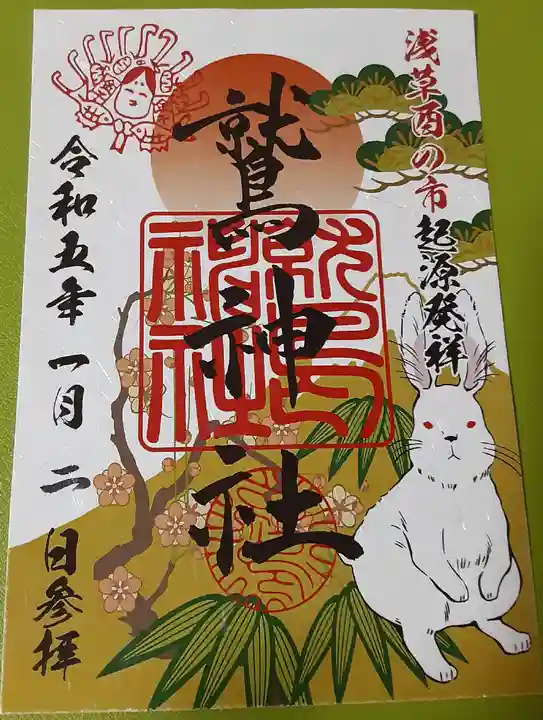 浅草酉の市
起源発祥
鷲神社
鷲神社
令和五年一月二日参拝